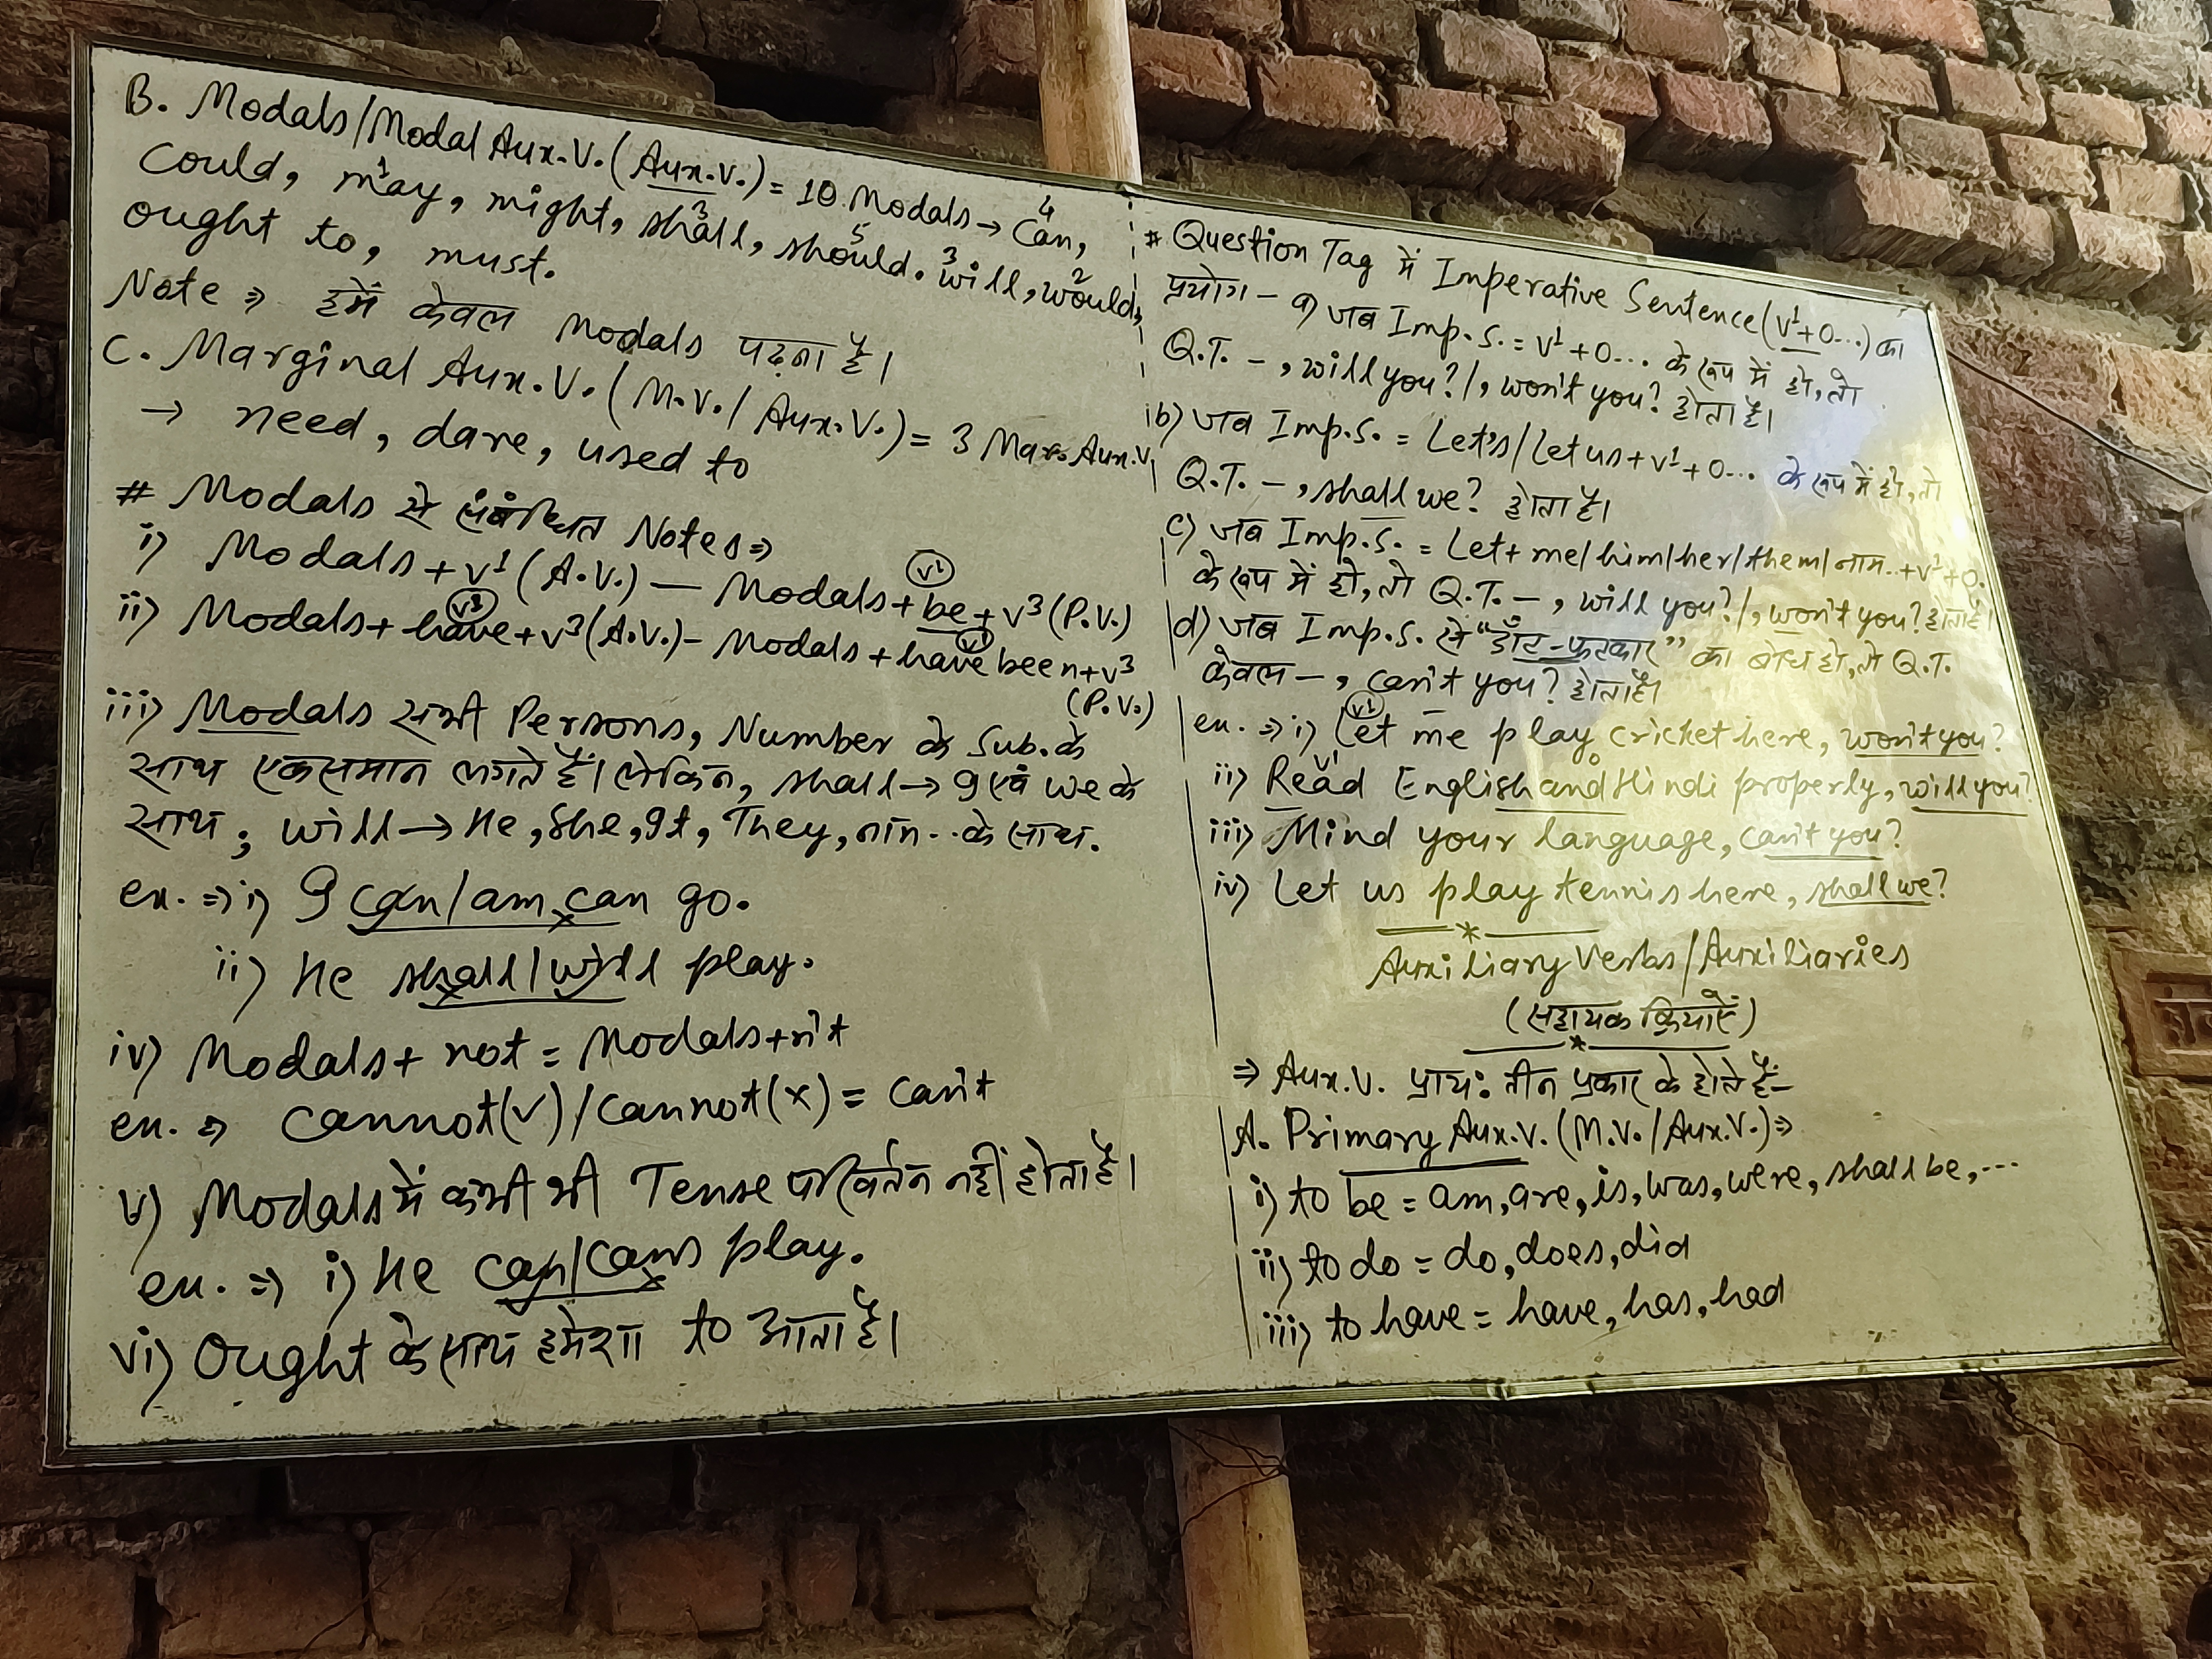 B. Modals/Modal Aux.V. (Aux.V.) = 10 Modals → Can,
Could, may, might, shall, should. will, would,
ought to, must.
Note ⇒ हमें केवल Modals पढ़ना है।
C. Marginal Aux.V. (M.V./Aux.V.) = 3 Mar. Aux.V.
→ need, dare, used to
# Modals से संबंधित Notes ⇒
i) Modals + V¹ (A.V.) — Modals + be + V³ (P.V.)
ii) Modals + have + V³ (A.V.) - Modals + have been + V³
(P.V.)
iii) Modals सभी Persons, Number के Sub. के
साथ एकसमान लगते हैं। लेकिन, shall → I एवं we के
साथ, will → He, She, It, They, नाम.. के साथ.
ex. ⇒ i) I can/am can go.
ii) He shall/will play.
iv) Modals + not = Modals + n't
ex. ⇒ cannot (v) / can not (x) = can't
v) Modals में कभी भी Tense परिवर्तन नहीं होता है।
ex. ⇒ i) He can/cans play.
vi) Ought के साथ हमेशा to आता है।
# Question Tag में Imperative Sentence (V¹+O...) का
प्रयोग - a) जब Imp.S. = V¹+O... के रूप में हो, तो
Q.T. - , will you? / , won't you? होता है।
b) जब Imp.S. = Let's/Let us + V¹ + O... के रूप में हो, तो
Q.T. - , shall we? होता है।
c) जब Imp.S. = Let + me/him/her/them/नाम..+V¹+O.
के रूप में हो, तो Q.T. - , will you? / , won't you? होता है।
d) जब Imp.S. से "डाँट-फटकार" का बोध हो, तो Q.T.
केवल - , can't you? होता है।
ex. ⇒ i) Let me play cricket here, won't you?
ii) Read English and Hindi properly, will you?
iii) Mind your language, can't you?
iv) Let us play tennis here, shall we?
Auxiliary Verbs/Auxiliaries
(सहायक क्रियाएँ)
⇒ Aux.V. प्रायः तीन प्रकार के होते हैं-
A. Primary Aux.V. (M.V./Aux.V.) ⇒
i) to be = am, are, is, was, were, shall be, ...
ii) to do = do, does, did
iii) to have = have, has, had